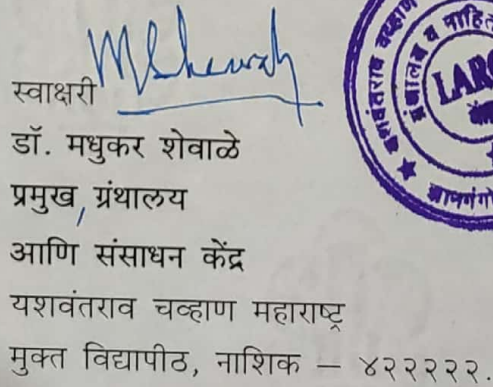 स्वाक्षरी
डॉ. मधुकर शेवाळे
प्रमुख, ग्रंथालय
आणि संसाधन केंद्र
यशवंतराव चव्हाण महाराष्ट्र
मुक्त विद्यापीठ, नाशिक – ४२२२२२.
यशवंतराव चव्हाण
ग्रंथालय व